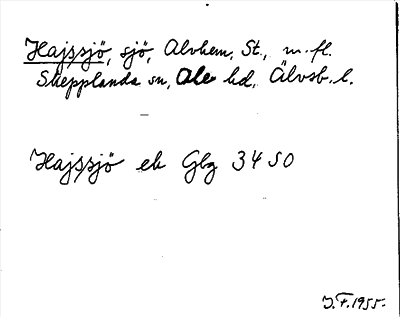 Hajssjö, sjö, Alvhem, St., m. fl.
Skepplanda sn, Ale hd, Älvsb. l.
Hajssjö ek Gbg 3450
J.F. 1955.